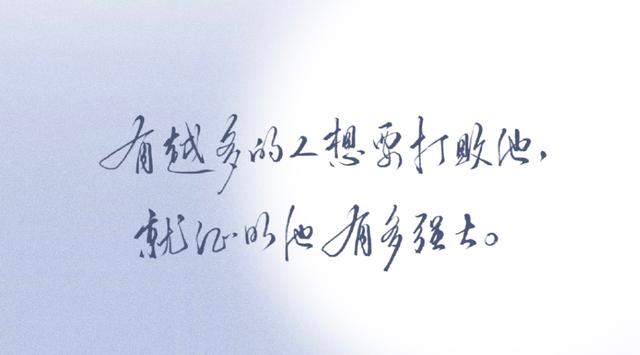 有越多的人想要打败他，
就证明他有多强大。